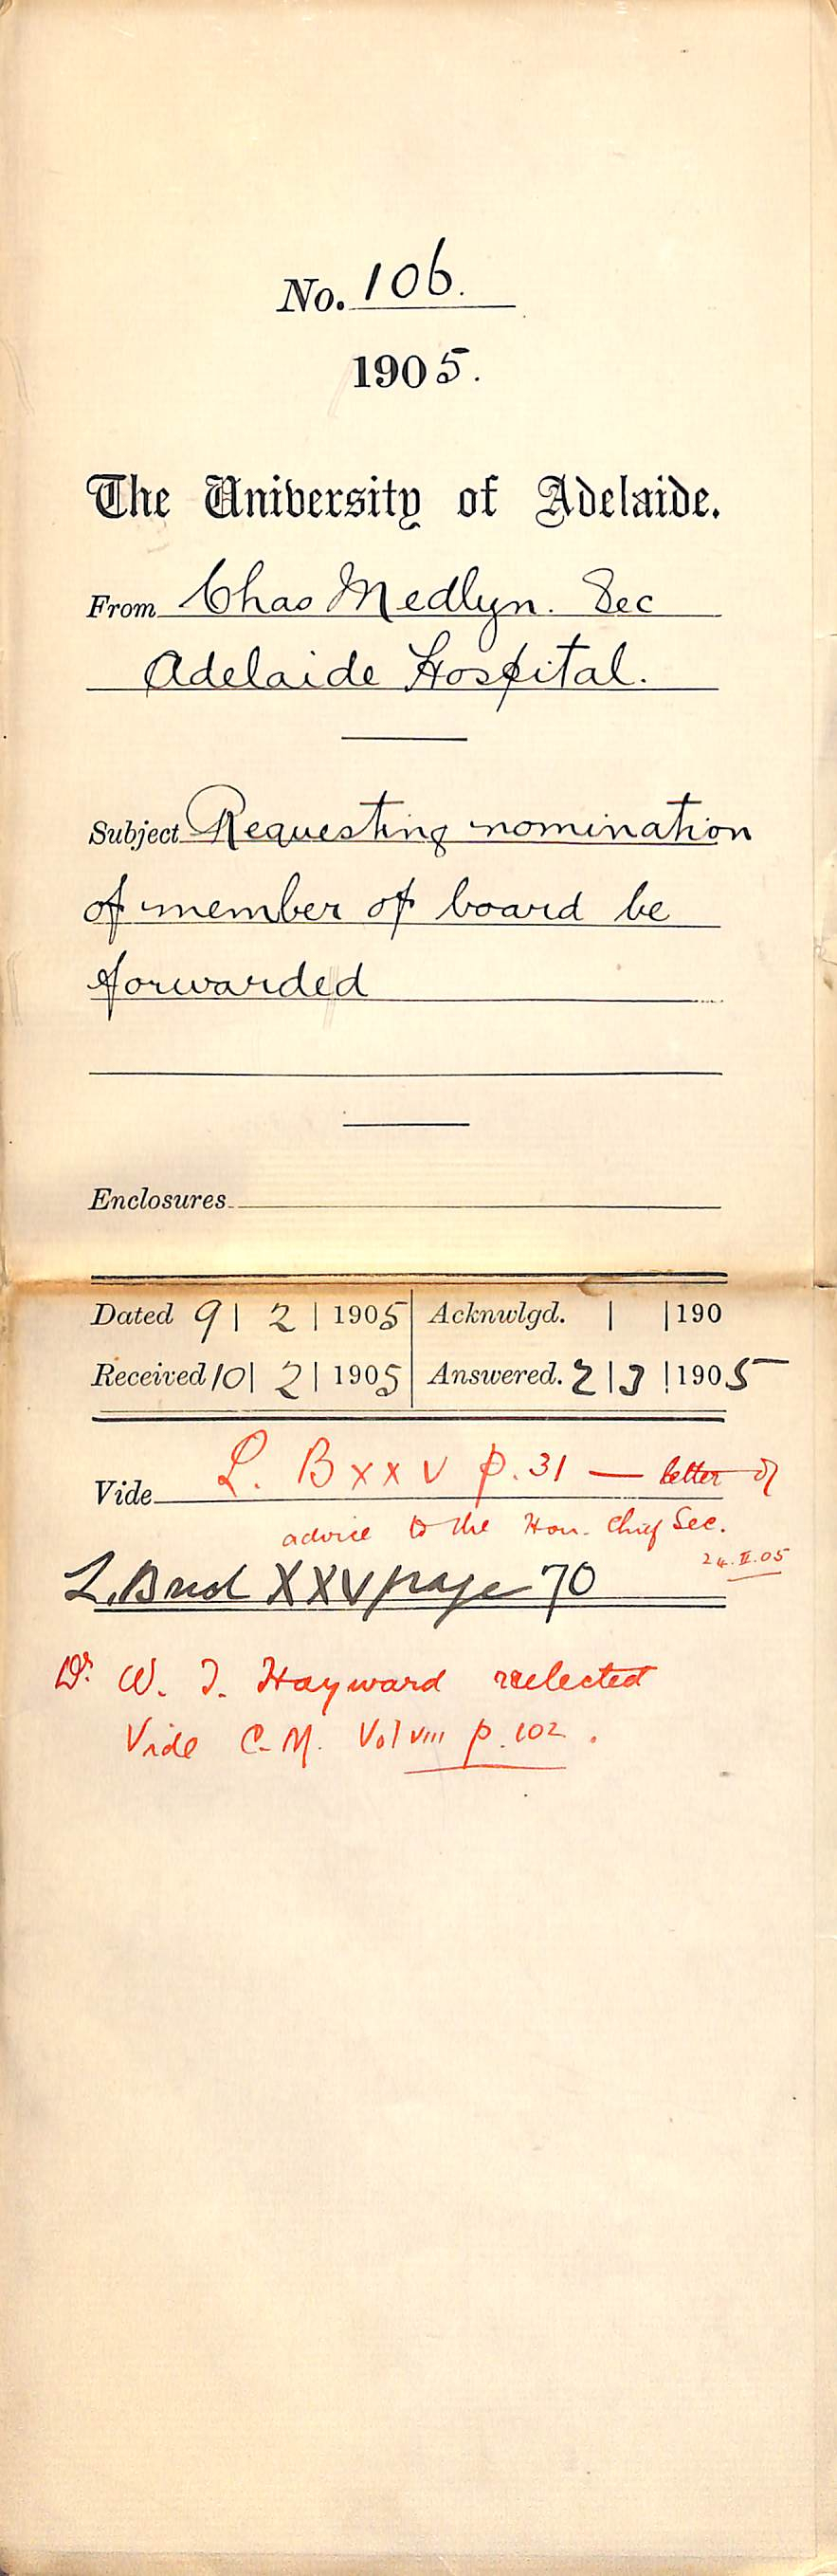 No. 106.
1905.
The University of Adelaide.
From Chas Medlyn. Sec
Adelaide Hospital.
Subject Requesting nomination
of member of board be
forwarded
Enclosures
Dated 9 | 2 | 1905 Acknwlgd. | | 190
Received 10 | 2 | 1905 Answered. 2 | 3 | 1905
Vide L. B XXV p. 31 — letter of
advice to the Hon. Chief Sec.
24.II.05
L. XXV page 70
Dr. W. T. Hayward reelected
Vide C.M. Vol VIII p. 102.